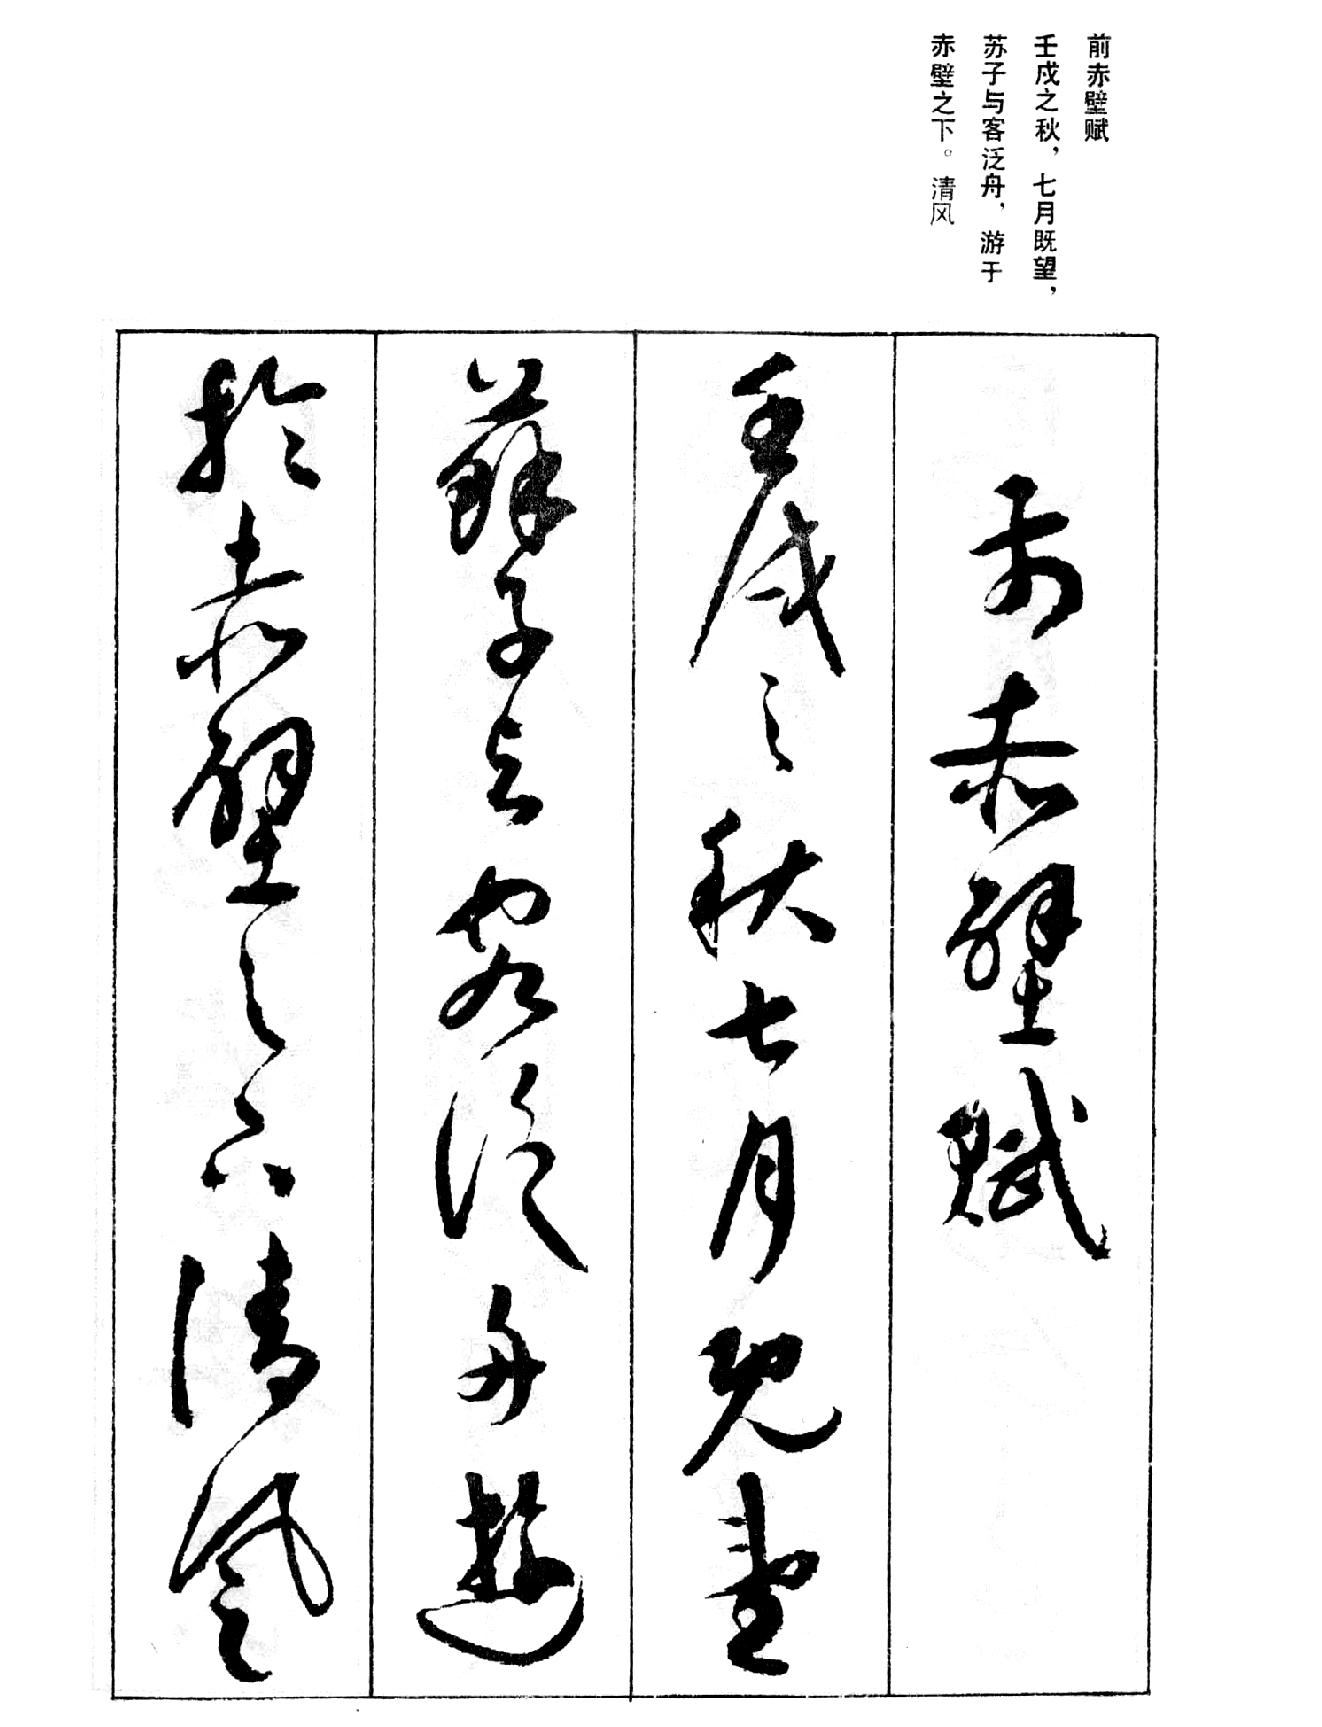 前赤壁赋
壬戌之秋，七月既望，
苏子与客泛舟，游于
赤壁之下。清风
前赤壁賦
壬戌之秋七月既望
蘇子與客泛舟遊
於赤壁之下清風